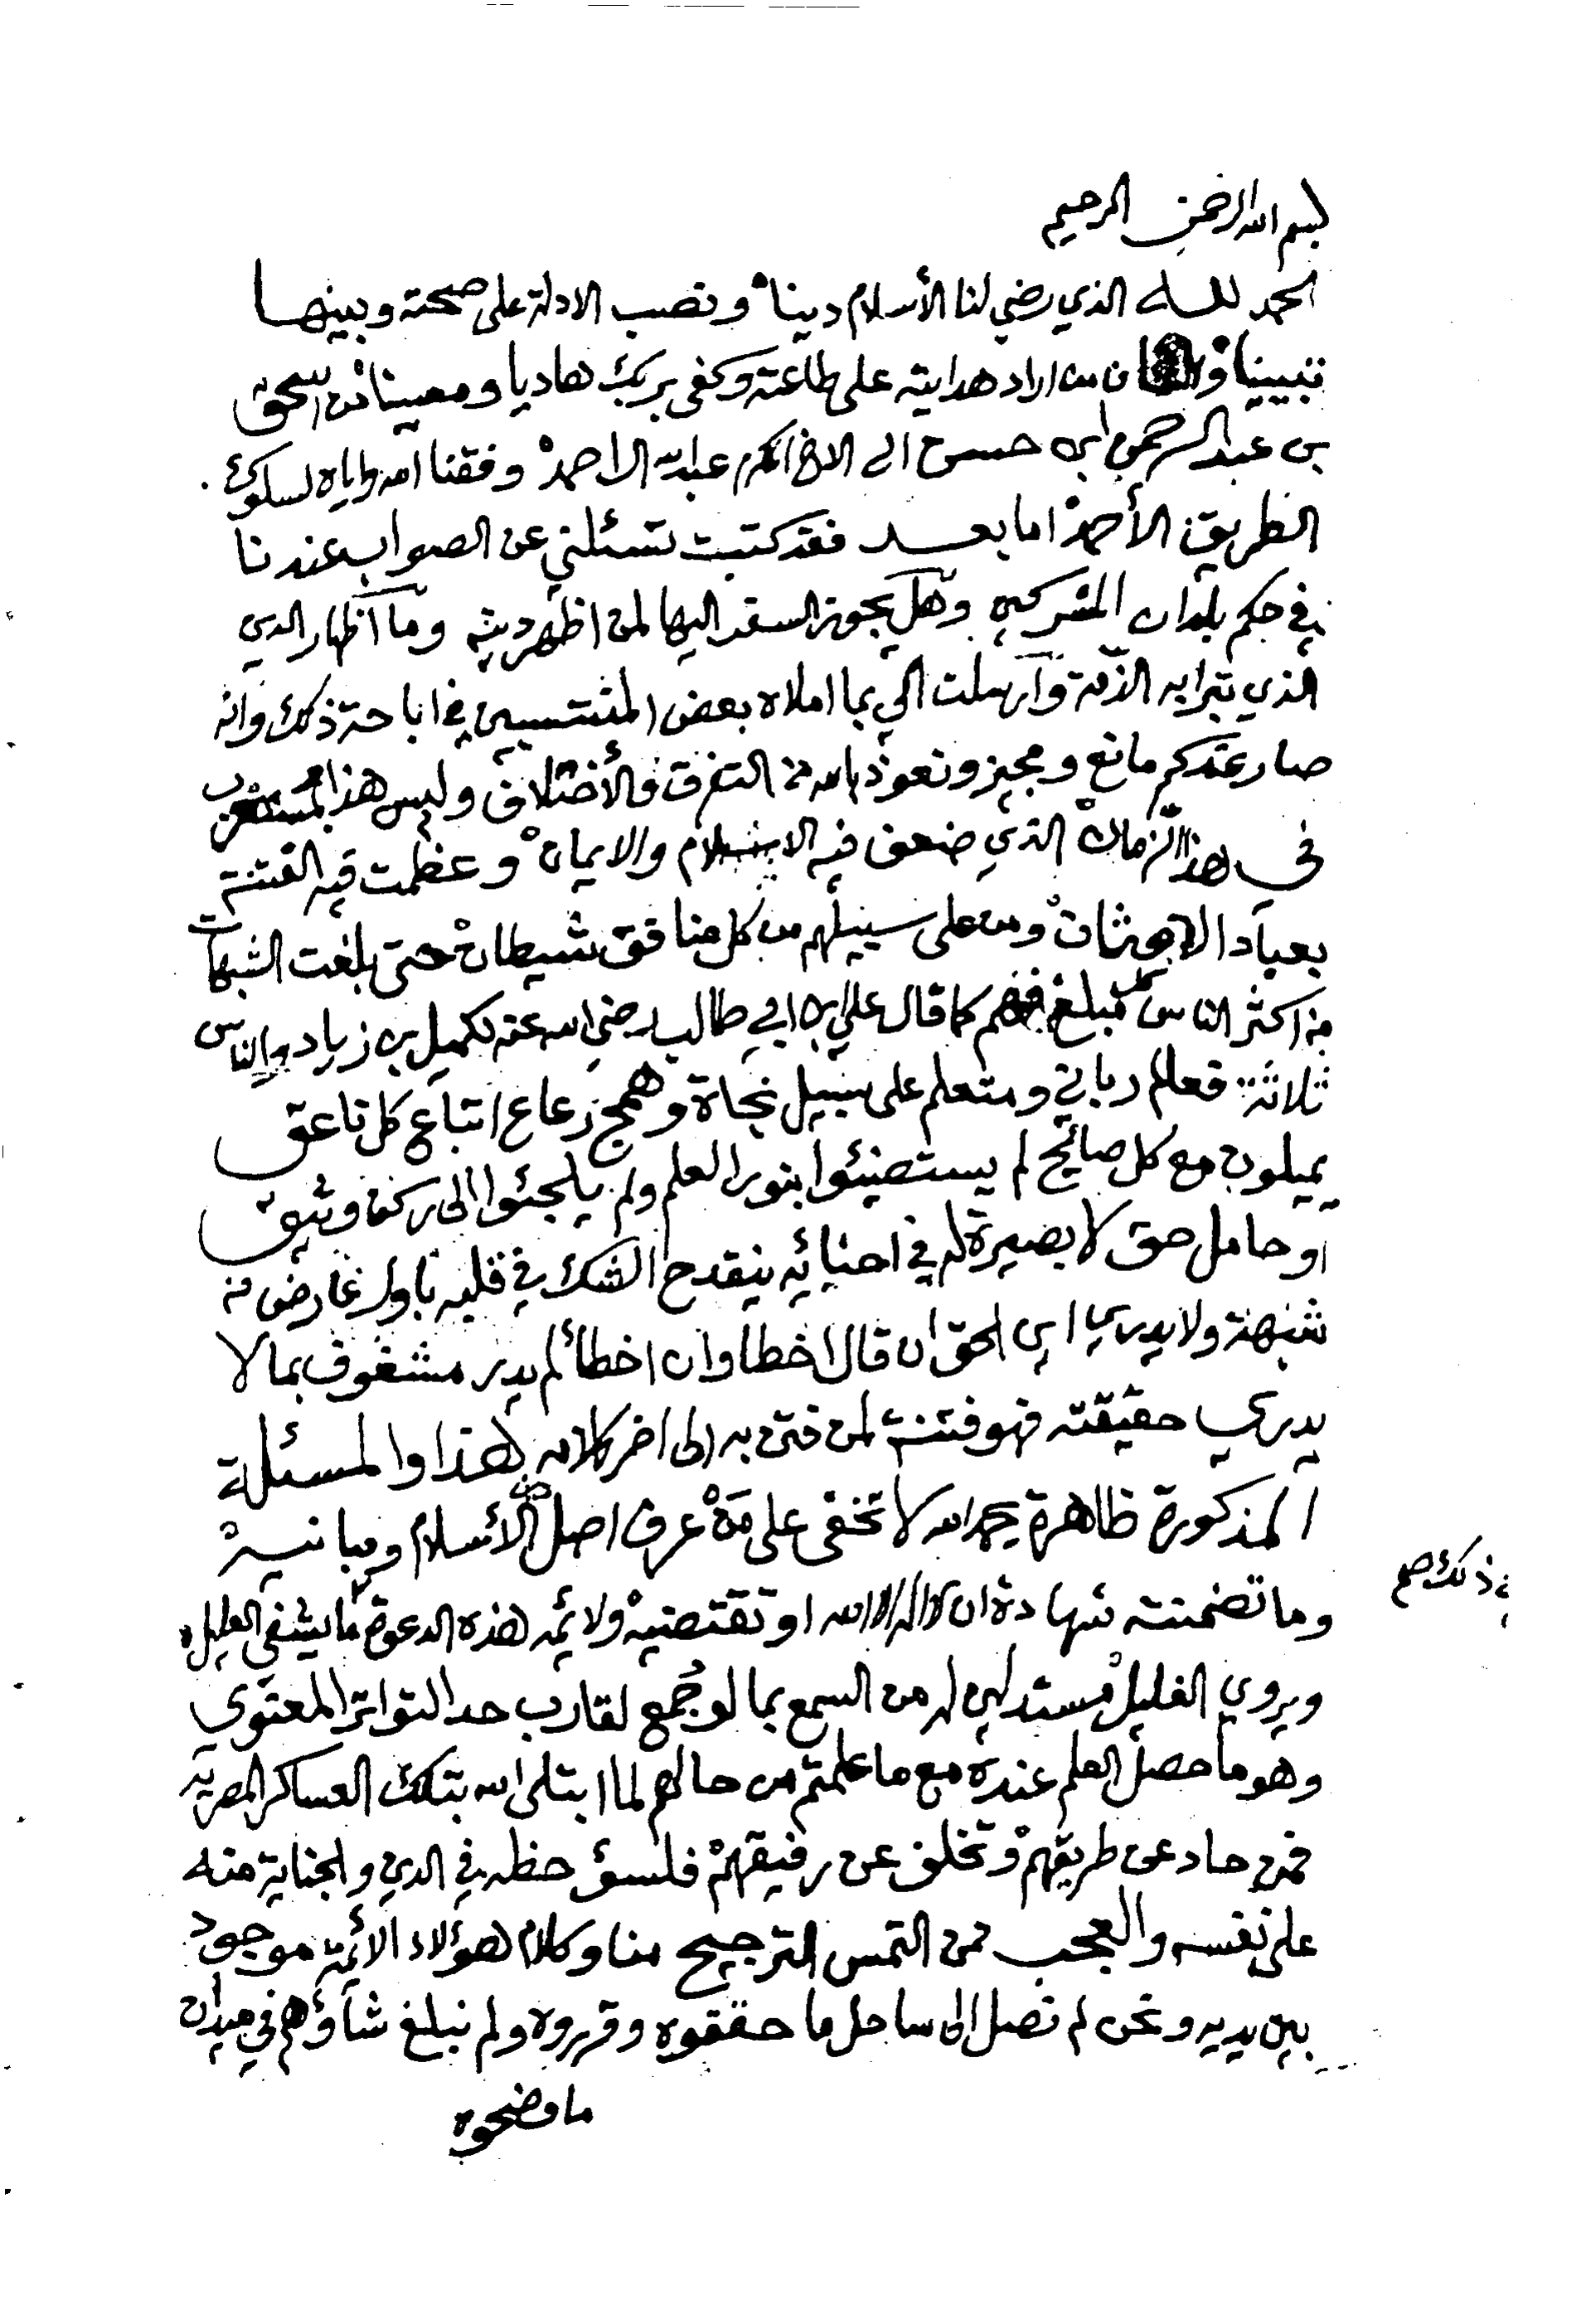 بسم الله الرحمن الرحيم
الحمد لله الذي رضي لنا الأسلام دينا ونصب الادلة على صحته وبينها
تبيينا من اراد هدايته على طاعته وكفى بربك هاديا ومعينا من اسحق
بن عبد الرحمن ابن حسن الى الاخ المكرم عبد الله ال احمد وفقنا الله واياه لسلوك
الطريق الأحمد اما بعد فقد كتبت تسئلني عن الصواب عندنا
في حكم بلدان المشركين وهل يجوز السفر اليها لمن اظهر دينه وما اظهار الدين
الذي تبرا به الذمة وارسلت الي بما املاه بعض المنتسبين في اباحة ذلك وانه
صار عندكم مانع ومجيز ونعوذ بالله من التفرق والأختلاف وليس هذا بمستغرب
في هذا الزمان الذي ضعف فيه الاسلام والايمان وعظمت فيه الفتنة
بعباد الاوثان ومن على سبيلهم من كل منافق شيطان حتى بلغت الشبهات
من اكثر الناس كل مبلغ فهم كما قال علي ابن ابي طالب رضي الله عنه لكميل بن زياد والناس
ثلاثة فعالم رباني ومتعلم على سبيل نجاة وهمج رعاع اتباع كل ناعق
يميلون مع كل صائح لم يستضيئوا بنور العلم ولم يلجئوا الى ركن وثيق
او حامل حق لا بصيرة له في احنائه ينقدح الشك في قلبه باول عارض من
شبهة ولا يدري اين الحق ان قال اخطا وان اخطأ لم يدر مشغوف بما لا
يدري حقيقته فهو فتنة لمن فتن به الى اخر كلامه هذا والمسئلة
المذكورة ظاهرة بحمد الله لا تخفى على من عرف اصل الأسلام ومبانيه
وما تضمنته شهادة ان لا اله الا الله او تقتضيه ولائمه هذه الدعوة ما يشفي العليل
في ذلك صح
ويروي الغليل مستدلين له من السمع بما لو جمع لقارب حد التواتر المعنوي
وهو ما حصل العلم عنده مع ما علمتم من حالهم لما ابتلى الله بتلك العساكر المصرية
فمن حاد عن طريقهم وتخلف عن رفيقهم فلسؤ حظه في الدين والجناية منه
على نفسه والعجب ممن التمس الترجيح منا وكلام هؤلاء الائمة موجود
بين يديه ونحن لم نصل الى ساحل ما حققوه وقرروه ولم نبلغ شأوهم في ميدان
ما وضحوه